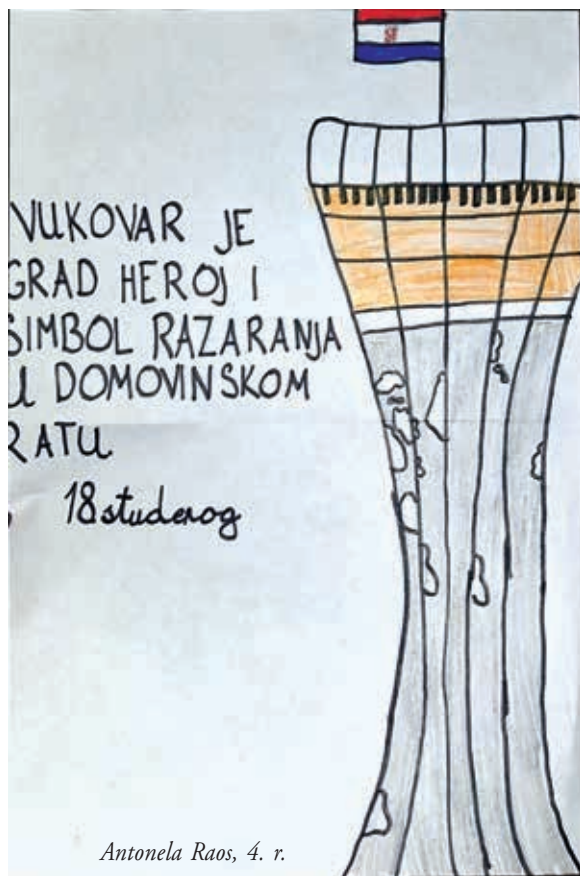 VUKOVAR JE
GRAD HEROJ I
SIMBOL RAZARANJA
U DOMOVINSKOM
RATU
18 studenog
Antonela Raos, 4. r.